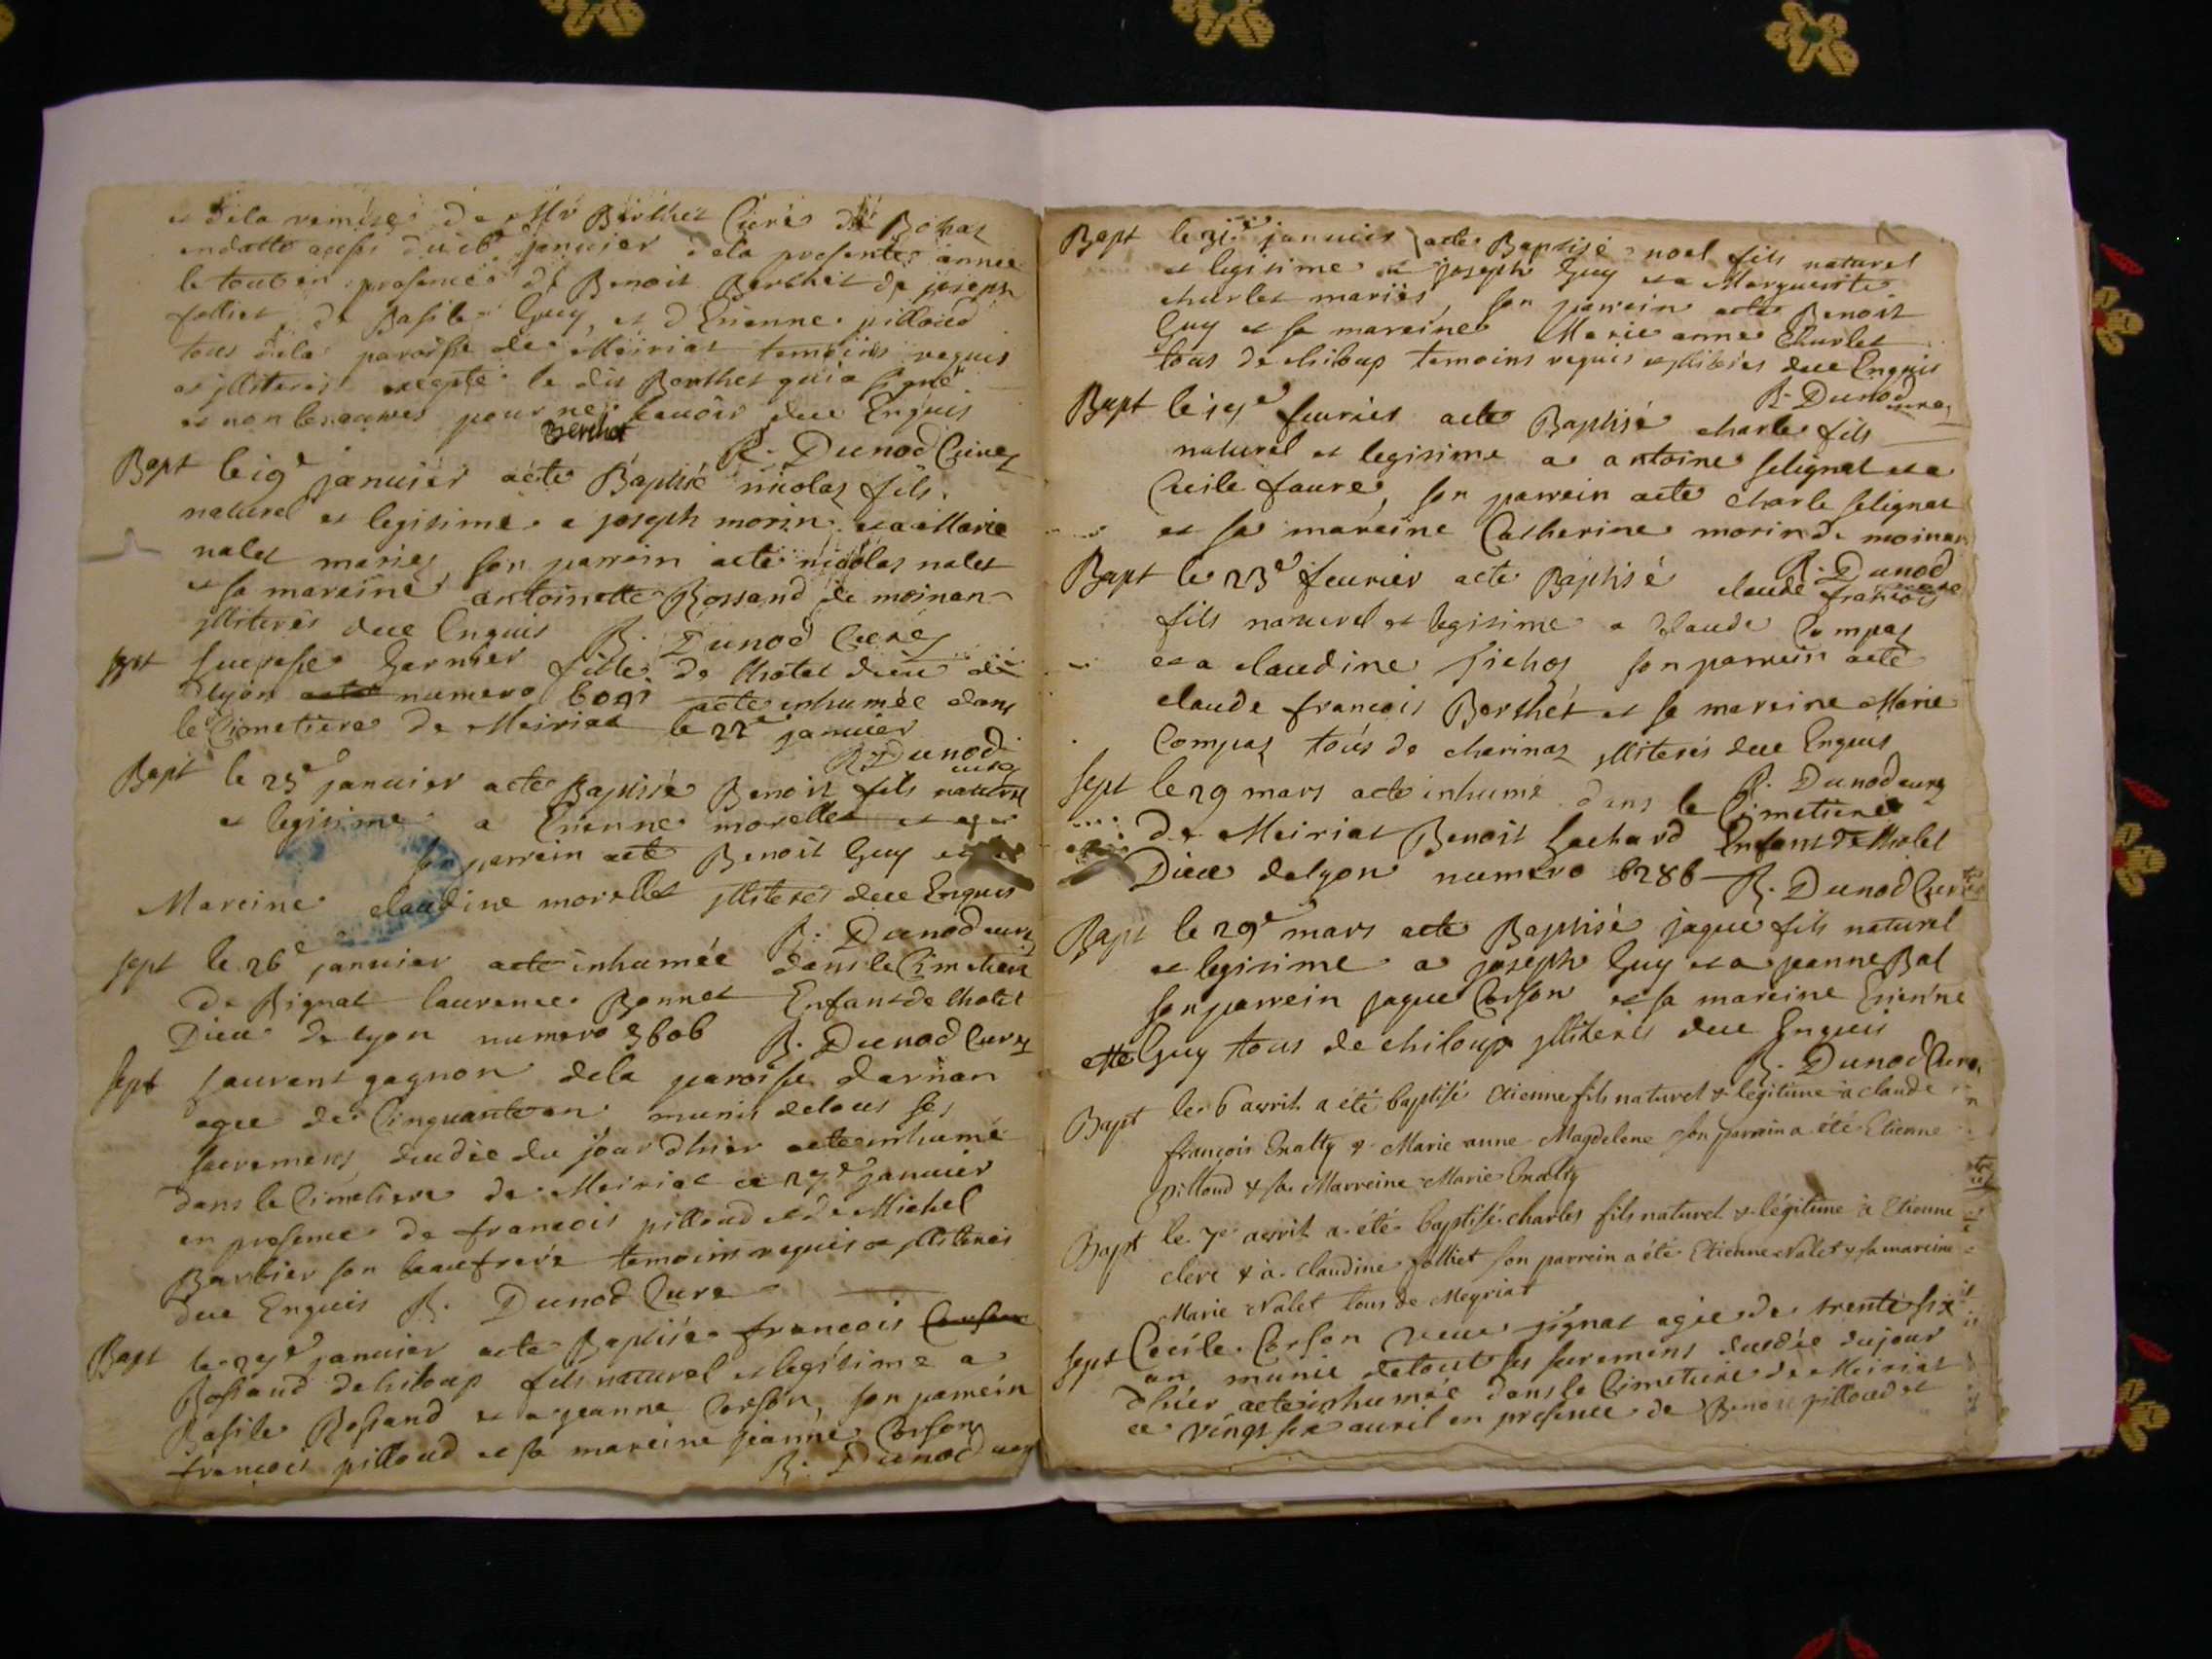 et dela remise de Mr Berthet Curé de Bohas
endatte aussi du 16e januier dela presente année
le tout en presence de Benoit Berthet de joseph
folliet, de Basile Guy, et d Etienne pilloud
tous dela paroisse de Meiriat temoins requis
et jlliterés excepté le dit Berthet qui a signé
et non les autres pour ne scauoir due Enquis
Berthet R. Dunod Curé
Bapt le 19e januier aeté Baptisé nicolas fils
naturel et legitime a joseph morin et a Marie
nalet mariés, son parrein aeté nicolas nalet
et sa mareine antoinette Bossand de moinan
jlliterés due Enquis R. Dunod Curé
sept fille de lhotel dieu de
lyon numero 6091 aeté inhumée dans
le Cimetiere de Meiriat le 22e januier
R. Dunod
curé
Bapt le 23e januier aeté Baptisé Benoit fils naturel
et legitime a Etienne morellet et a
son parrein aeté Benoit Guy et sa
Mareine claudine morellet jlliterés due Enquis
R. Dunod curé
sept le 26e januier aeté inhumée dans le Cimetiere
de Rignat laurence Bonnet Enfant de lhotel
Dieu de lyon numero 3606 R. Dunod Curé
Sept Laurent gagnon dela paroisse darnan
agee de Cinquante an munis detous ses
sacremens, decdée du jour dhier aeté inhumé
dans le Cimetiere de Meiriat ce 27e januier
en presence de francois pilloud et de Michel
Barbier son beaufrere temoins requis et jlliterés
due Enquis R. Dunod Curé
Bapt le 29e januier aeté Baptisé francois
Bossand dechiloup fils naturel et legitime a
Basile Bossand et a jeanne Corson, son parrein
francois pilloud et sa mareine jeanne Corson
R. Dunod curé
Bapt le 31e januier aeté Baptisé noel fils naturel
et legitime a joseph Guy et a Marguerite
charlet mariés, son parrein aeté Benoit
Guy et sa mareine Marie anne Charlet
tous de chiloup temoins requis et jlliterés due Enquis
R. Dunod curé
Bapt le 15e feurier aeté Baptisé charle fils
naturel et legitime a antoine selignat et a
Cecile faure, son parrein aeté charle selignat
et sa mareine Catherine morin de moinan
R. Dunod
curé
Bapt le 23e feurier aeté Baptisé claude francois
fils naturel et legitime a claude Compas
et a claudine son parrein aeté
claude francois Berthet et sa mareine Marie
Compas tous de charinas jlliterés due Enquis
R. Dunod curé
Sept le 29 mars aeté inhumé dans le Cimetiere
de Meiriat Benoit Lachard Enfant de lhotel
Dieu de lyon numero 6286 R. Dunod Curé
Bapt le 29e mars aeté Baptisé jaque fils naturel
et legitime a joseph Guy et a jeanne Bal
son parrein jaque Corson et sa mareine Etienne
Guy tous de chiloup jlliterés due Enquis
R. Dunod Curé
Bapt le 6 avril a été baptisé Etienne fils naturel & légitime à claude
françois & Marie anne Magdelene son parrain a été Etienne
pilloud & sa Marreine Marie
Bapt le 7e avril a été baptisé charles fils naturel & légitime à Etienne
clerc & à claudine folliet son parrein a été Etienne Nalet & sa mareine
Marie Nalet tous de Meyriat
Sept Cecile Corson veuue pignat agée de trente six
an munie detout ses sacremens decdée dujour
dhier aeté inhumée dans le Cimetiere de Meiriat
ce vingt six auril en presence de Benoit pilloud et